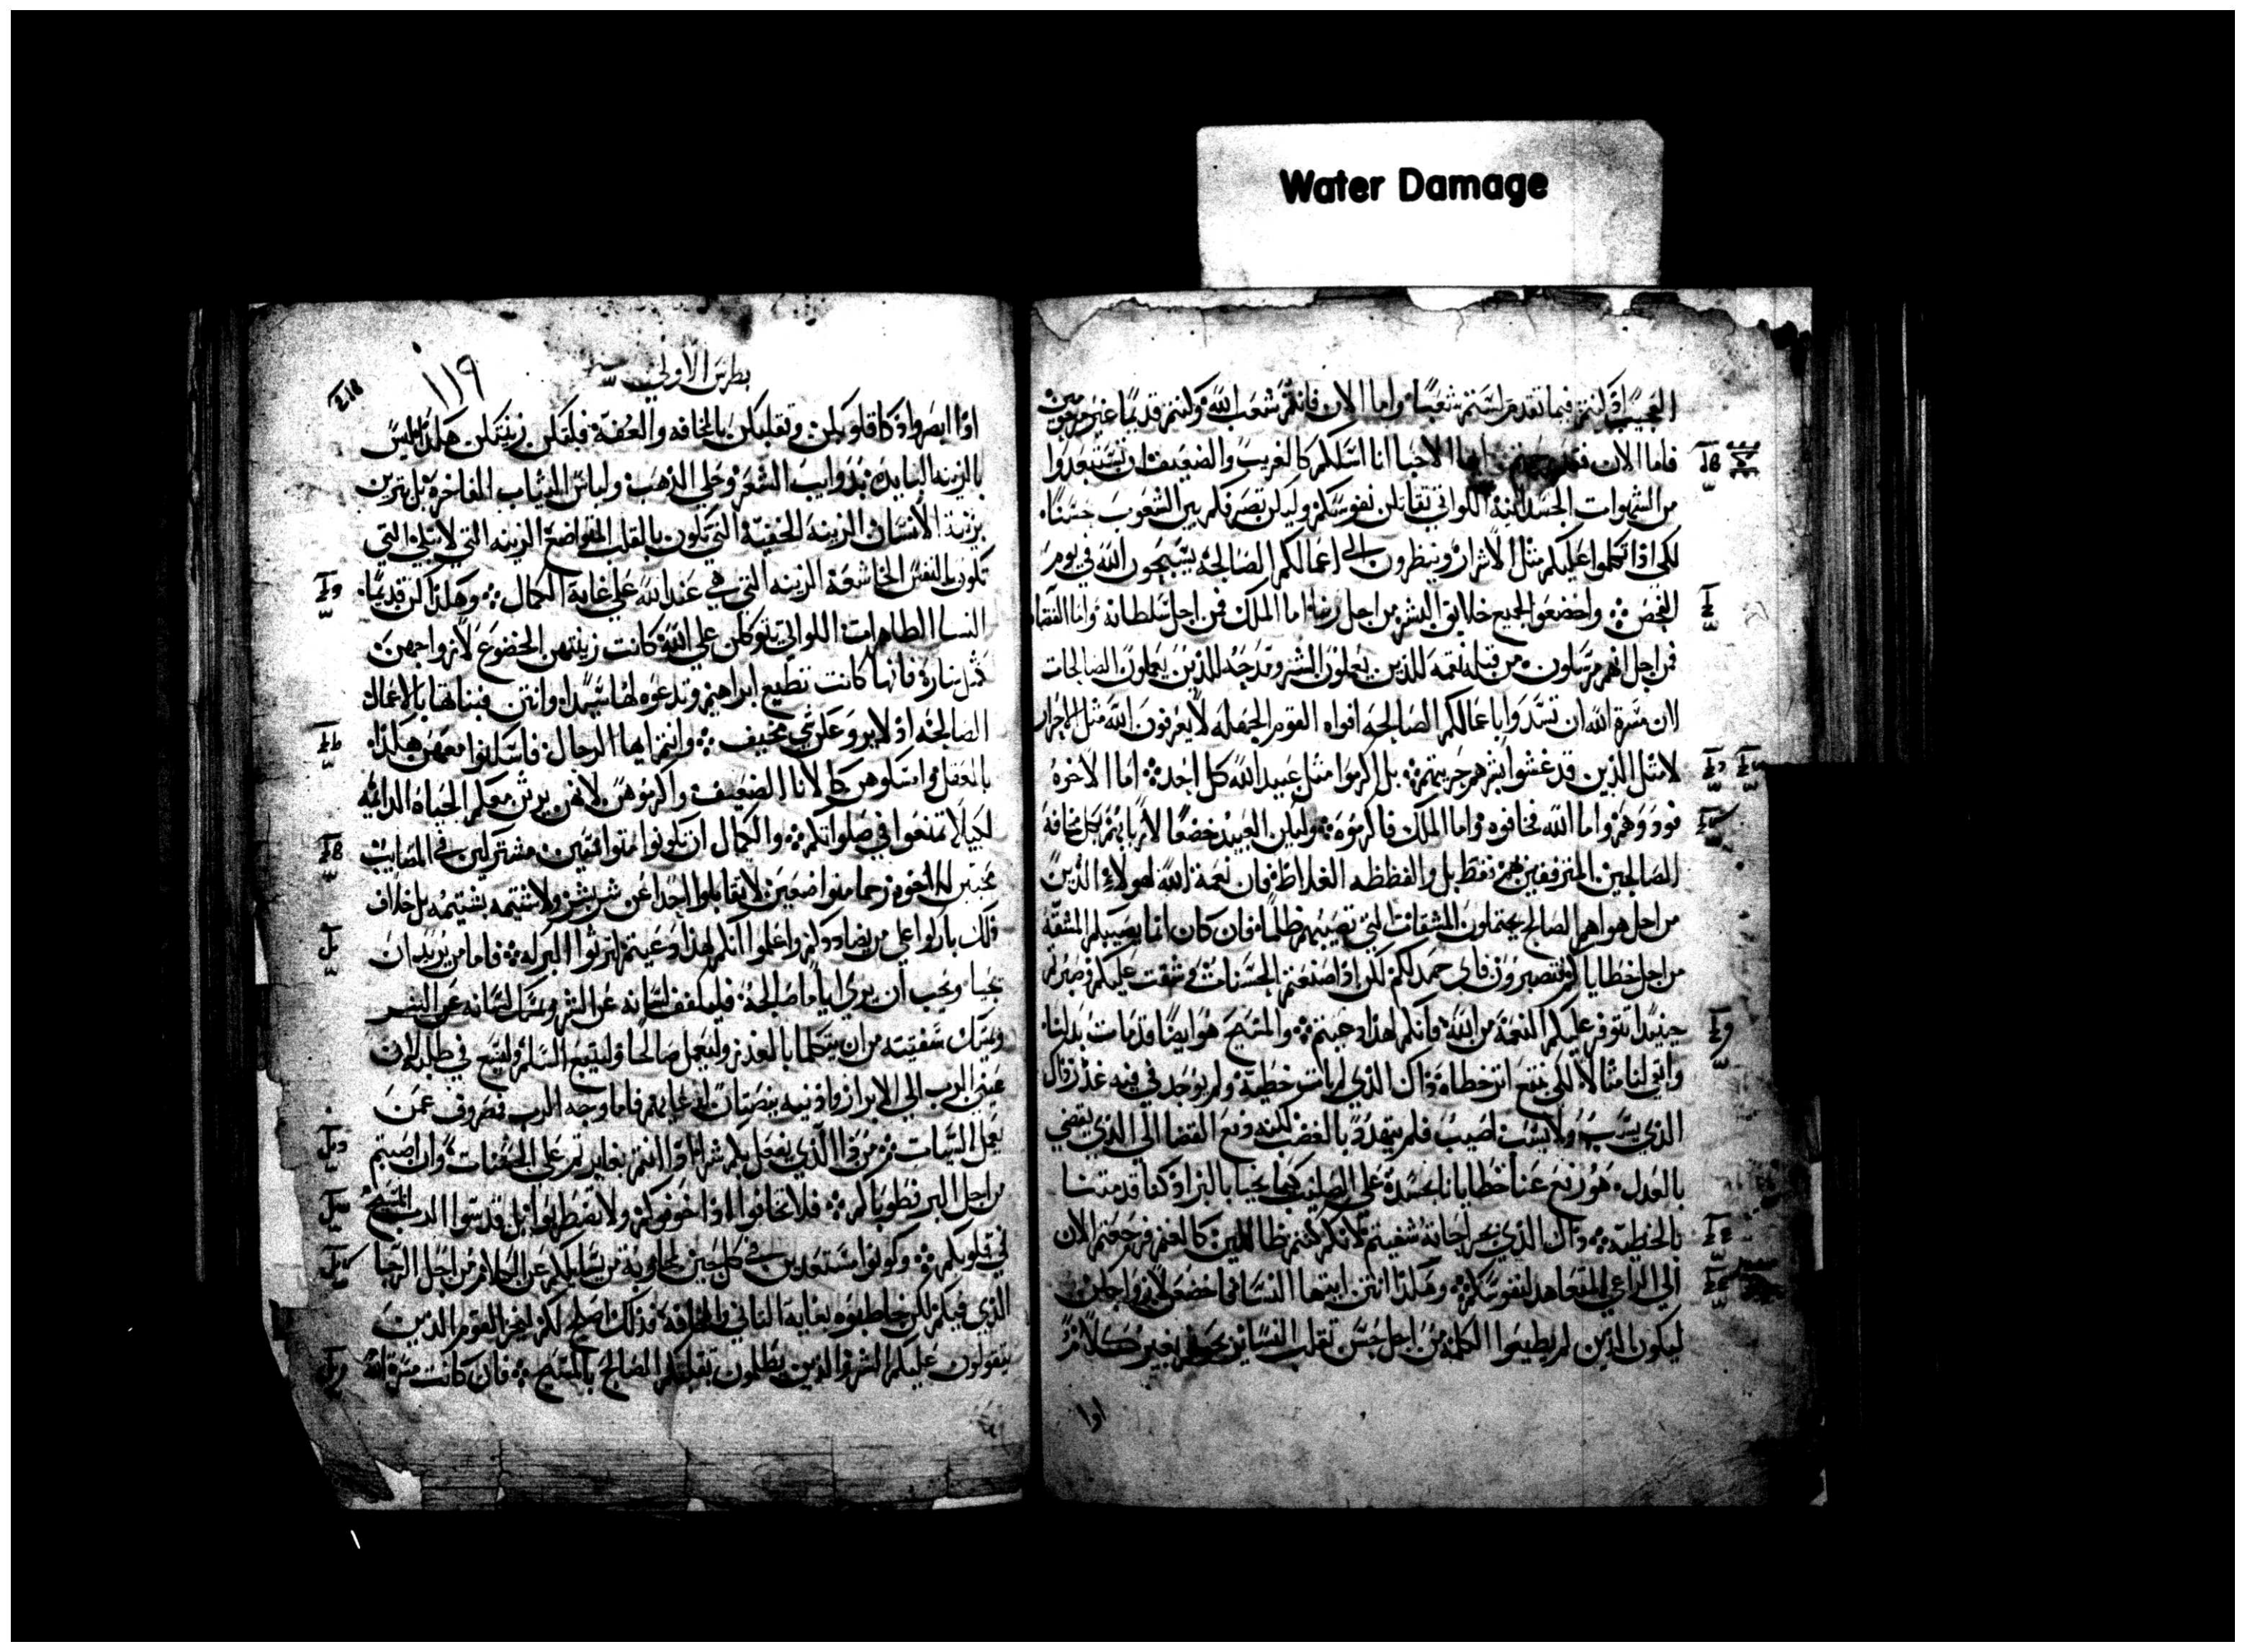 Water Damage
العجيب اذ كنتم فيما تقدم لستم شعبًا واما الان فانكم شعب الله وكنتم قديمًا غير مرحومين
فاما الان فقد ايها الاحبا انا اسلكم كالغريب والضعيف ان تستبعدوا
من الشهوات الجسدانية اللواتي تقاتلن نفوسكم وليكن تصرفكم بين الشعوب حسنًا
لكي اذا تكلموا عليكم مثل الاشرار وينظرون الى اعمالكم الصالحة يسبحون الله في يوم
الفحص واخضعوا لجميع خلايق البشر من اجل ربنا اما الملك فمن اجل سلطانه واما القضاه
فمن اجل انهم مرسلون من قبله نقمه للذين يعملون الشر ومدحه للذين يعملون الصالحات
لان مسرة الله ان تسدوا باعمالكم الصالحه افواه القوم الجهله لا يعرفون الله مثل الاحرار
لا مثل الذين قد غشوا شرهم حريتهم بل اكرموا مثل عبيد الله كل احد اما الاخوه
فودوهم واما الله فخافوه واما الملك فاكرموه وليكن العبيد خضعًا لاربابهم بكل مخافة
الصالحين المترفقين هم فقط بل والفظظه الغلاظ فان نعمة الله لهولاء الذين
من اجل هواهم الصالح يحتملون المشقات التي تصيبهم ظلمًا فان كان انما يصيبكم المشقه
من اجل خطاياكم فتصبرون فاي حمد لكم لكن اذا صنعتم الحسنات وشقت عليكم فصبرتم
حينيدا تتوفر عليكم النعمة من الله فانكم لهذا دعيتم والمسيح هو ايضًا قد مات بدلنا
وابقى لنا مثالا لكي نتبع اثر خطاه ذاك الذي لم يات خطية ولم يوجد في فيه غدر ذاك
الذي يسب ولا يسب اصيب فلم يتهدد بالغضب لكنه دفع القضا الى الذي يقضي
بالعدل هو رفع عنا خطايانا بجسده على الصليب كيما نحيا بالبر اذ كنا قد متنا
بالخطية ذاك الذي بجراحاته شفيتم لانكم كنتم ضالين كالغنم فرجعتم الان
الى الراعي المتعاهد لنفوسكم وهكذا انتن ايتها النسا فاخضعن لازواجكن
ليكون الذين لم يطيعوا الكلمة من اجل حسن تقلب النسا بغير كلام
اوا
بطرس الاولى
١١٩
اوا ابصروا ذكا قلوبكن وتقلبكن بالمخافه والعفة فلتكن زينتكن هكذا ليس
بالزينه البايده بذوايب الشعر وحلي الذهب ولباس الثياب الفاخرة بل تزين
بزينة الانسان الزينة الخفية التي تكون بالقلب المتواضع الزينه التي لا تبلى التي
تكون بالنفس الخاشعة الزينه التي هي عند الله على غاية الكمال وهكذا كن قديمًا
النسا الطاهرات اللواتي يتوكلن على الله كانت زينتهن الخضوع لازواجهن
مثل سارة فانها كانت تطيع ابراهيم وتدعوه لها سيدًا وانتن فبناتها بالاعمال
الصالحه اذ لا يروعكن شي مخيف وانتم ايها الرجال فاسكنوا معهن هكذا
بالعقل وامسكوهن كالانا الضعيف واكرموهن لانهن يرثن معكم الحياه الدائمه
لكيلا تمنعوا في صلواتكم والكمال ان تكونوا متوافقين مشتركين في المصايب
محبين للاخوه رحما متواضعين لا تقابلوا احدا عن شر بشر ولا شتيمه بشتيمه بل خلاف
ذلك باركوا على من يضاددكم واعلموا انكم لهذا دعيتم لترثوا البركه فاما من يريد ان
يحيا ويحب ان يرى اياما صالحة فليكفف لسانه عن الشر ويمسك لسانه عن الشر
ويمسك شفتيه من ان يتكلما بالغدر وليعمل صالحًا وليتبع السلم وليسع في طلبه لان
عيني الرب الى الابرار واذنيه ينصتان لدعايهم فاما وجه الرب فصروف عمن
يعمل السيات فمن ذا الذي يفعل بكم شرا اذا انتم تغايرتم على الحسنات وان اصبتم
من اجل البر فطوباكم فلا تخافوا اذا خوفوكم ولا تضطربوا بل قدسوا الرب المسيح
في قلوبكم وكونوا مستعدين في كل حين لمجاوبة من يسايلكم عن الكلام من اجل الرجا
الذي فيكم لكن خاطبوه بغاية التاني والمخافة فذلك اصلح لكم ليخزا القوم الذين
يتقولون عليكم الشر والذين يظلمون تقلبكم الصالح بالمسيح فان كانت مسرة الله